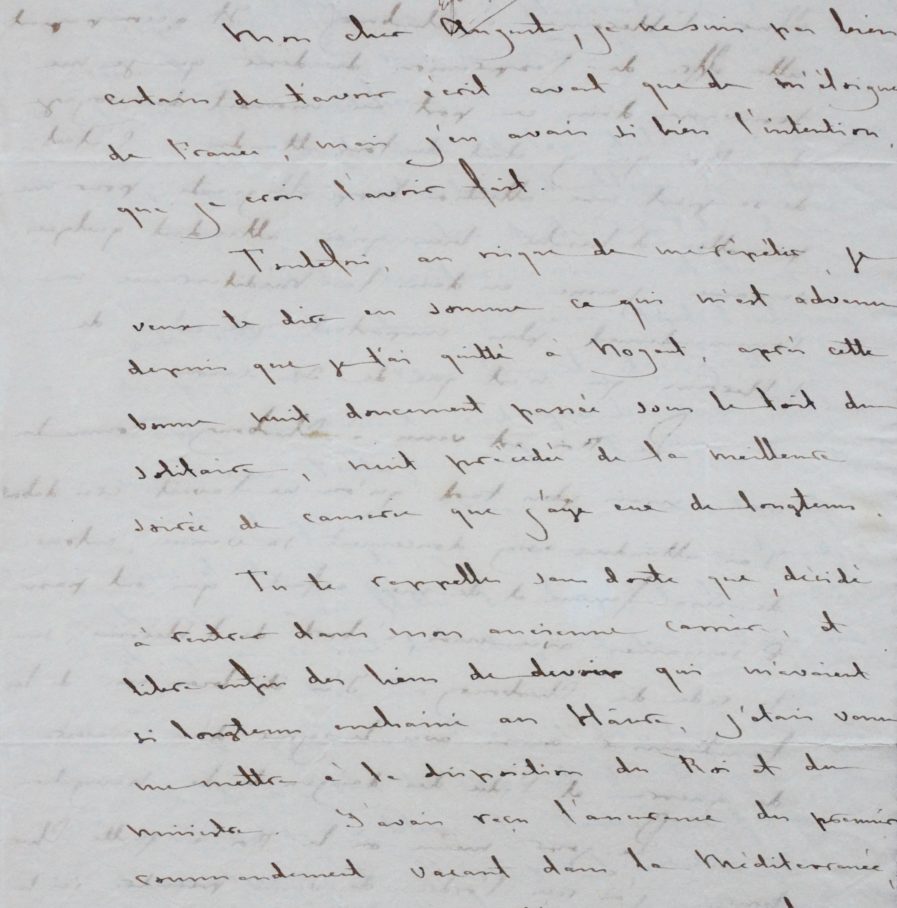 Mon cher Auguste, je ne suis pas bien
certain de t'avoir écrit avant que de m'éloigner
de France, mais j'en avais si bien l'intention,
que je crois l'avoir fait.
Toutefois, au risque de me répéter, je
veux te dire en somme ce qui m'est advenu
depuis que je t'ai quitté à Nogent, après cette
bonne nuit doucement passée sous le toit du
solitaire, nuit précédée de la meilleure
soirée de causerie que j'aye eue de longtems.
Tu te rappelles sans doute que, décidé
à rentrer dans mon ancienne carrière, et
libre enfin des liens de devoir qui m'avaient
si longtems enchainé au Hâvre, j'étais venu
me mettre à la disposition du Roi et du
ministre. J'avais reçu l'assurance du premier
commandement vacant dans la Méditerranée,